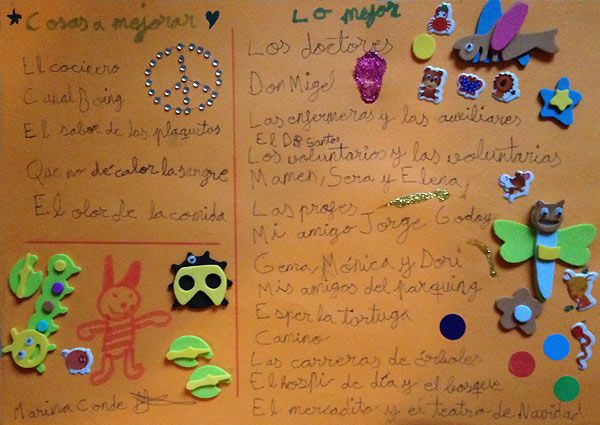 Cosas a mejorar
El cocinero
Canal Boing
El sabor de las plaquetas
Que no dé calor la sangre
El olor de la comida
Marina Conde
Lo mejor
Los doctores
Don Migel
Las enfermeras y las auxiliares
El DR Santos
Los voluntarios y las voluntarias
Mamen, Sera y Elena
Las profes
Mi amigo Jorge Goday
Gema, Mónica y Dori
Mis amigos del parquing
Esper la tortuga
Camino
Las carreras de árboles
El hospi de día y el bosque
El mercadito y el teatro de Navidad